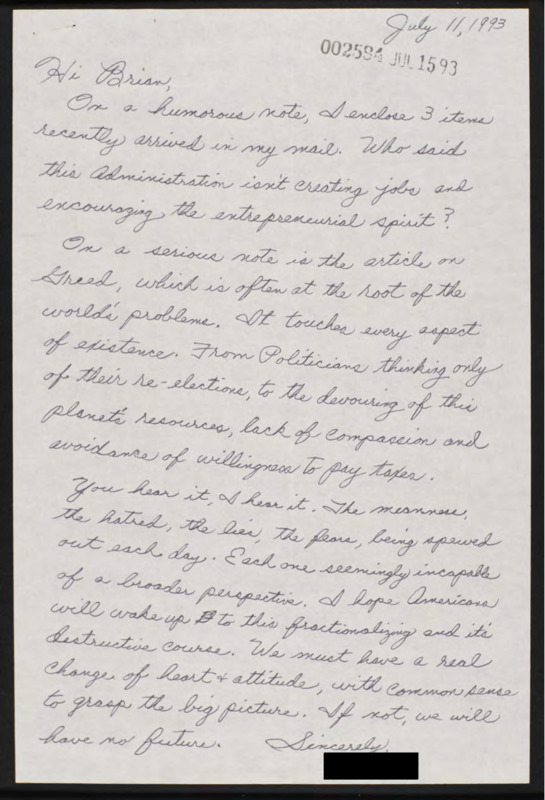 July 11, 1993
002584 JUL 1593
Hi Brian,
On a humorous note, I enclose 3 items
recently arrived in my mail. Who said
this Administration isn't creating jobs and
encouraging the entrepreneurial spirit?
On a serious note is the article on
Greed, which is often at the root of the
world's problems. It touches every aspect
of existence. From Politicians thinking only
of their re-elections, to the devouring of this
planet's resources, lack of compassion and
avoidance of willingness to pay taxes.
You hear it, I hear it. The meanness,
the hatred, the lies, the fears, being spewed
out each day. Each one seemingly incapable
of a broader perspective. I hope Americans
will wake up to this fractionalizing and it's
destructive course. We must have a real
change of heart & attitude, with common sense
to grasp the big picture. If not, we will
have no future. Sincerely,